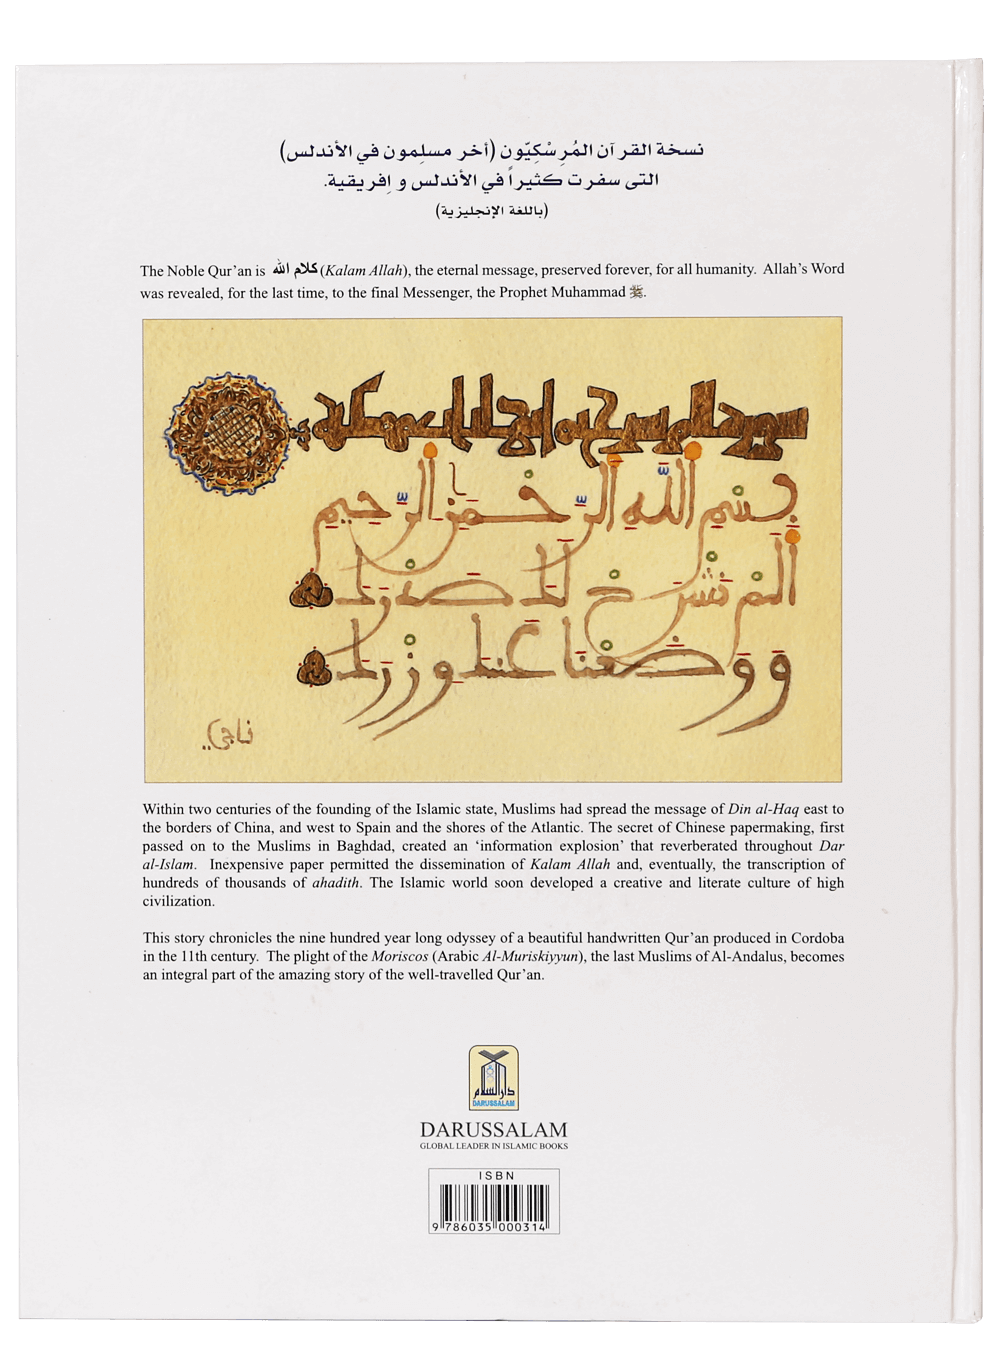 نسخة القرآن المُرِسْكِيّون (أخر مسلِمون في الأندلس)
التى سفرت كثيراً في الأندلس و إفريقية.
(باللغة الإنجليزية)
The Noble Qur’an is كلام الله (Kalam Allah), the eternal message, preserved forever, for all humanity. Allah’s Word
was revealed, for the last time, to the final Messenger, the Prophet Muhammad ﷺ.
بِسْمِ اللّٰهِ الرَّحْمٰنِ الرَّحِيمِ
أَلَمْ نَشْرَحْ لَكَ صَدْرَكَ
وَوَضَعْنَا عَنكَ وِزْرَكَ
ناجي
Within two centuries of the founding of the Islamic state, Muslims had spread the message of Din al-Haq east to
the borders of China, and west to Spain and the shores of the Atlantic. The secret of Chinese papermaking, first
passed on to the Muslims in Baghdad, created an ‘information explosion’ that reverberated throughout Dar
al-Islam. Inexpensive paper permitted the dissemination of Kalam Allah and, eventually, the transcription of
hundreds of thousands of ahadith. The Islamic world soon developed a creative and literate culture of high
civilization.
This story chronicles the nine hundred year long odyssey of a beautiful handwritten Qur’an produced in Cordoba
in the 11th century. The plight of the Moriscos (Arabic Al-Muriskiyyun), the last Muslims of Al-Andalus, becomes
an integral part of the amazing story of the well-travelled Qur’an.
دار السلام
DARUSSALAM
DARUSSALAM
GLOBAL LEADER IN ISLAMIC BOOKS
ISBN
9 786035 000314